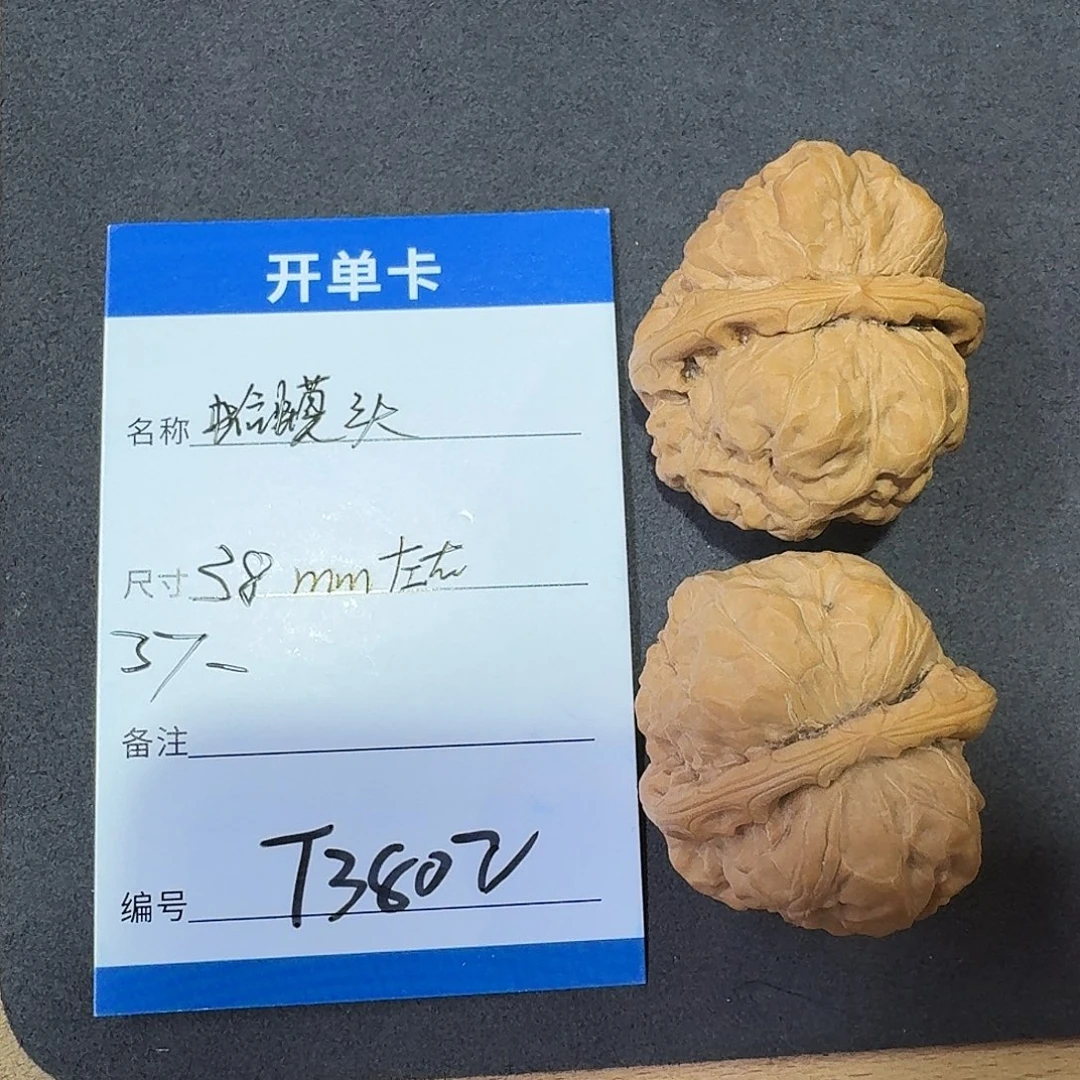 开单卡
名称 蛤蟆头
尺寸 38 mm 左右
37-
备注
编号 T3802